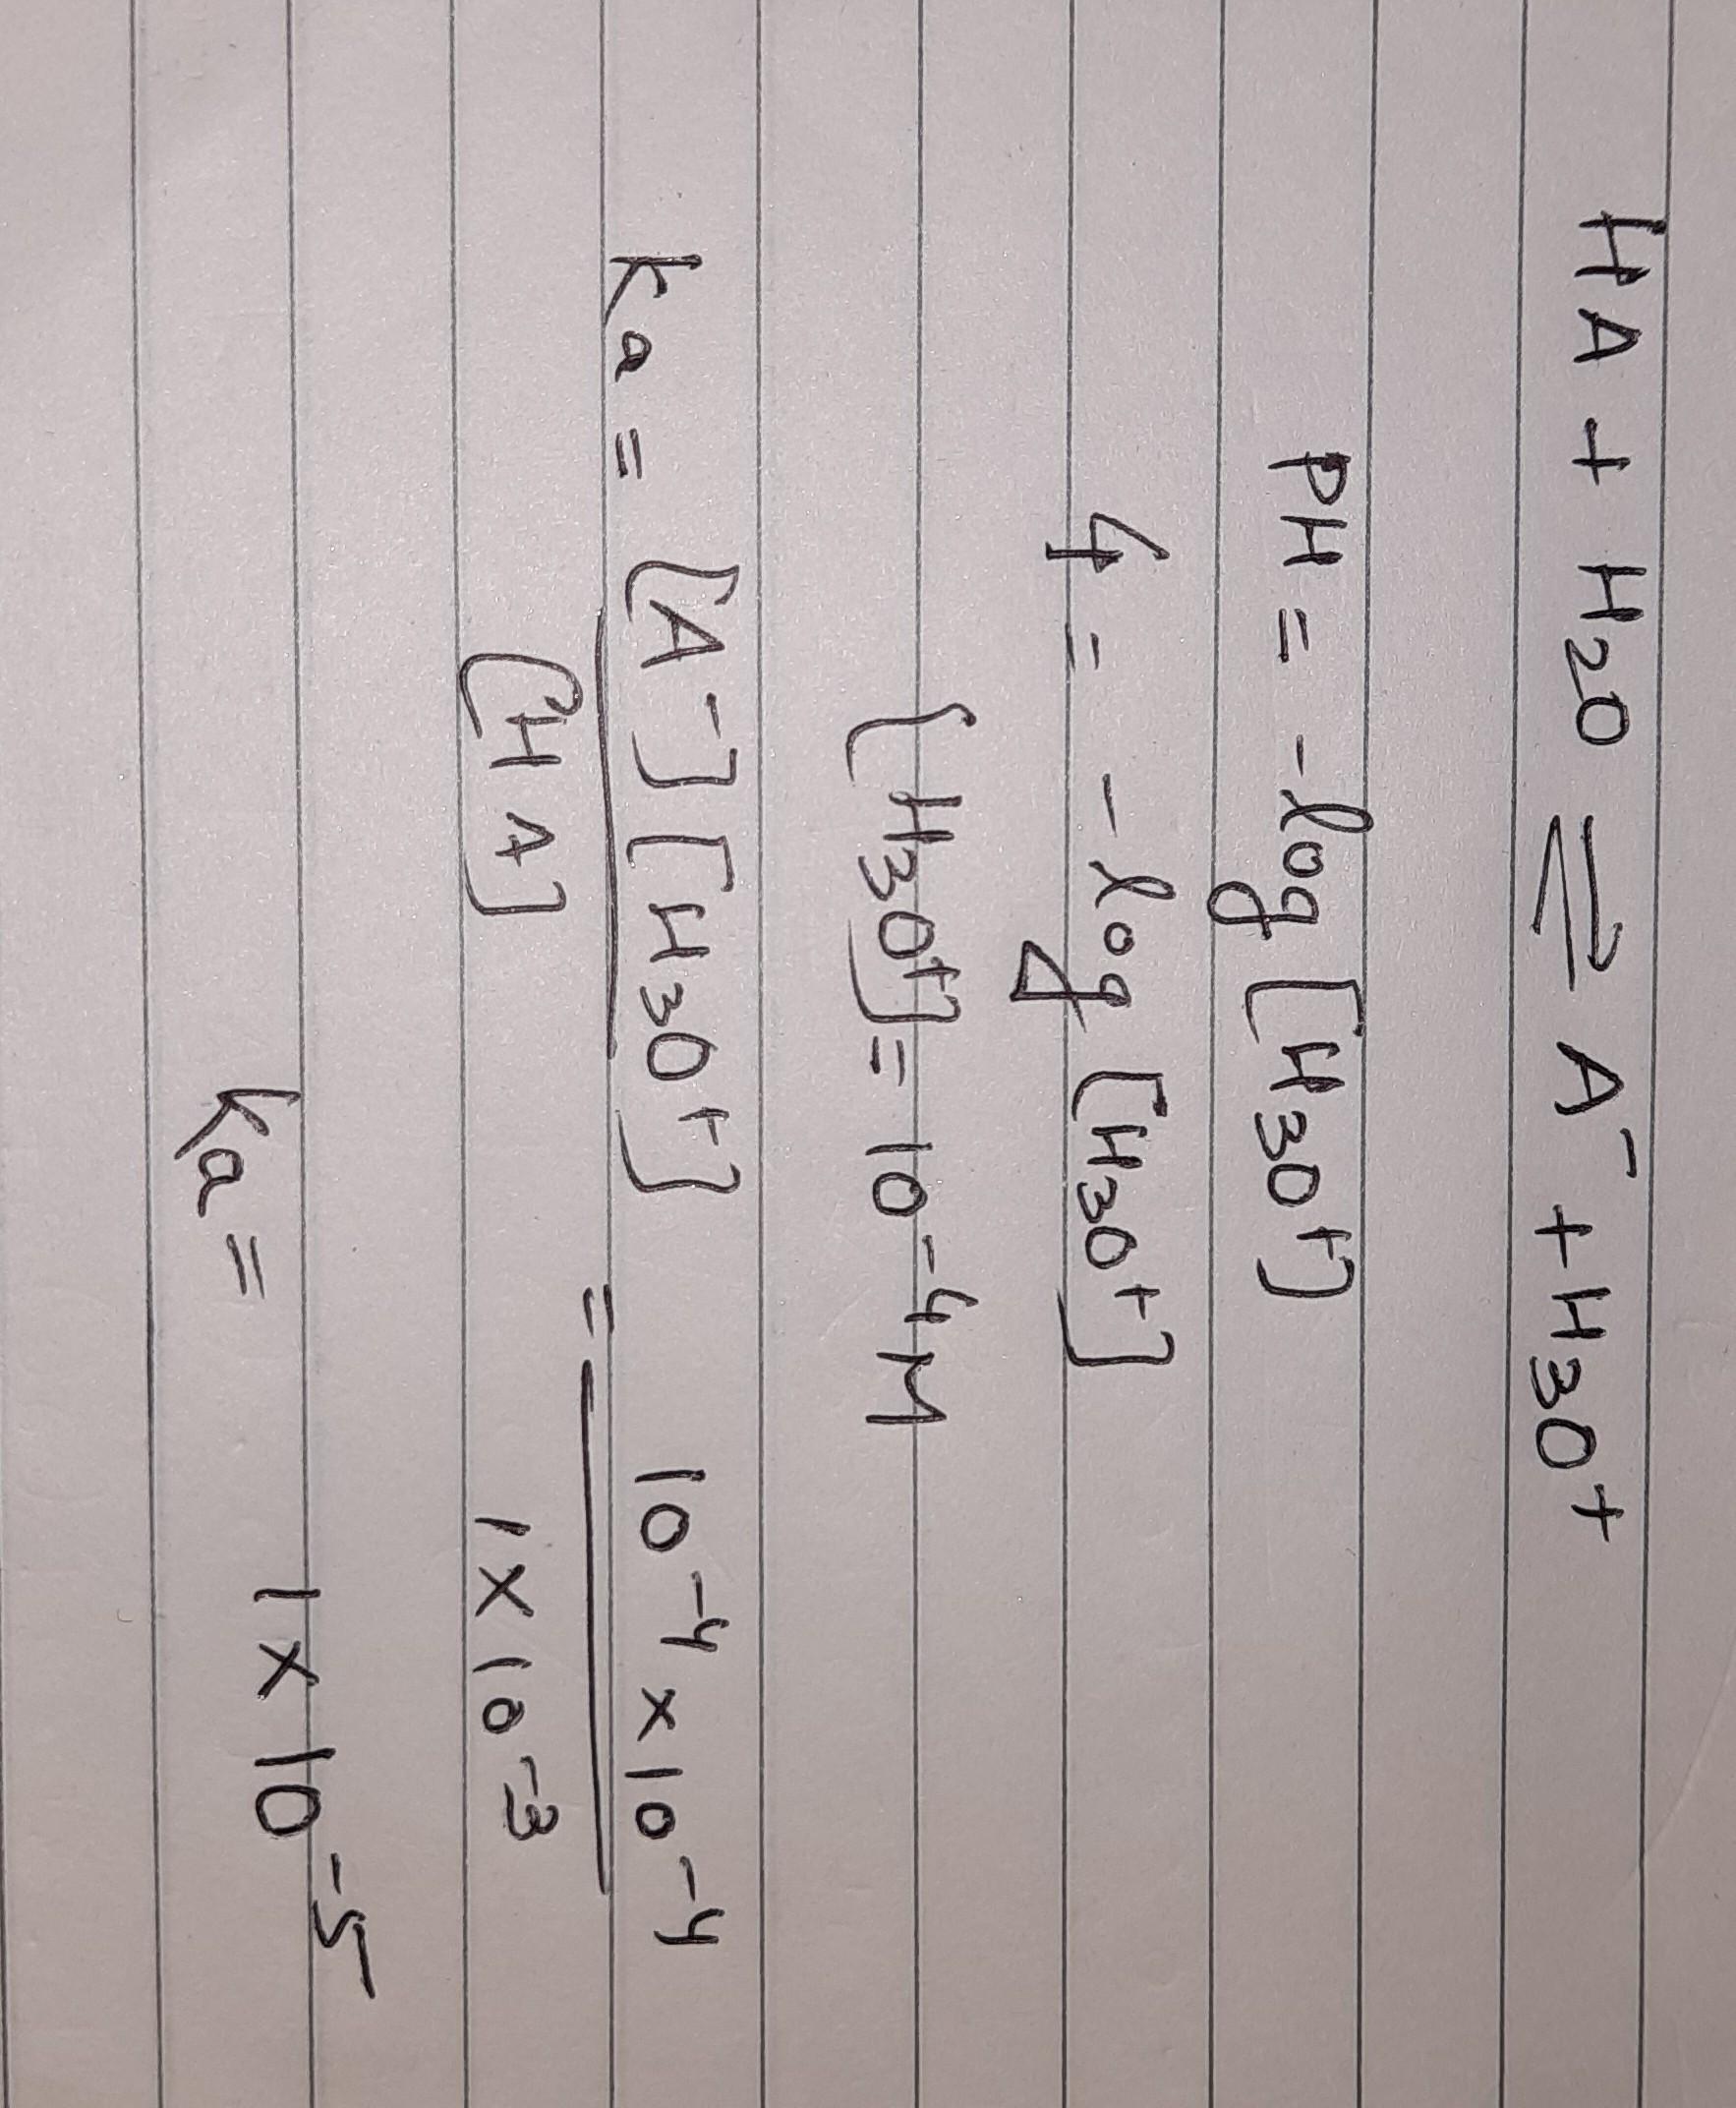 HA + H2O ⇌ A⁻ + H3O⁺
PH = -log [H3O⁺]
4 = - log [H3O⁺]
[H3O⁺] = 10⁻⁴ M
Ka = [A⁻] [H3O⁺] / [HA] = 10⁻⁴ × 10⁻⁴ / 1 × 10⁻³
Ka = 1 × 10⁻⁵